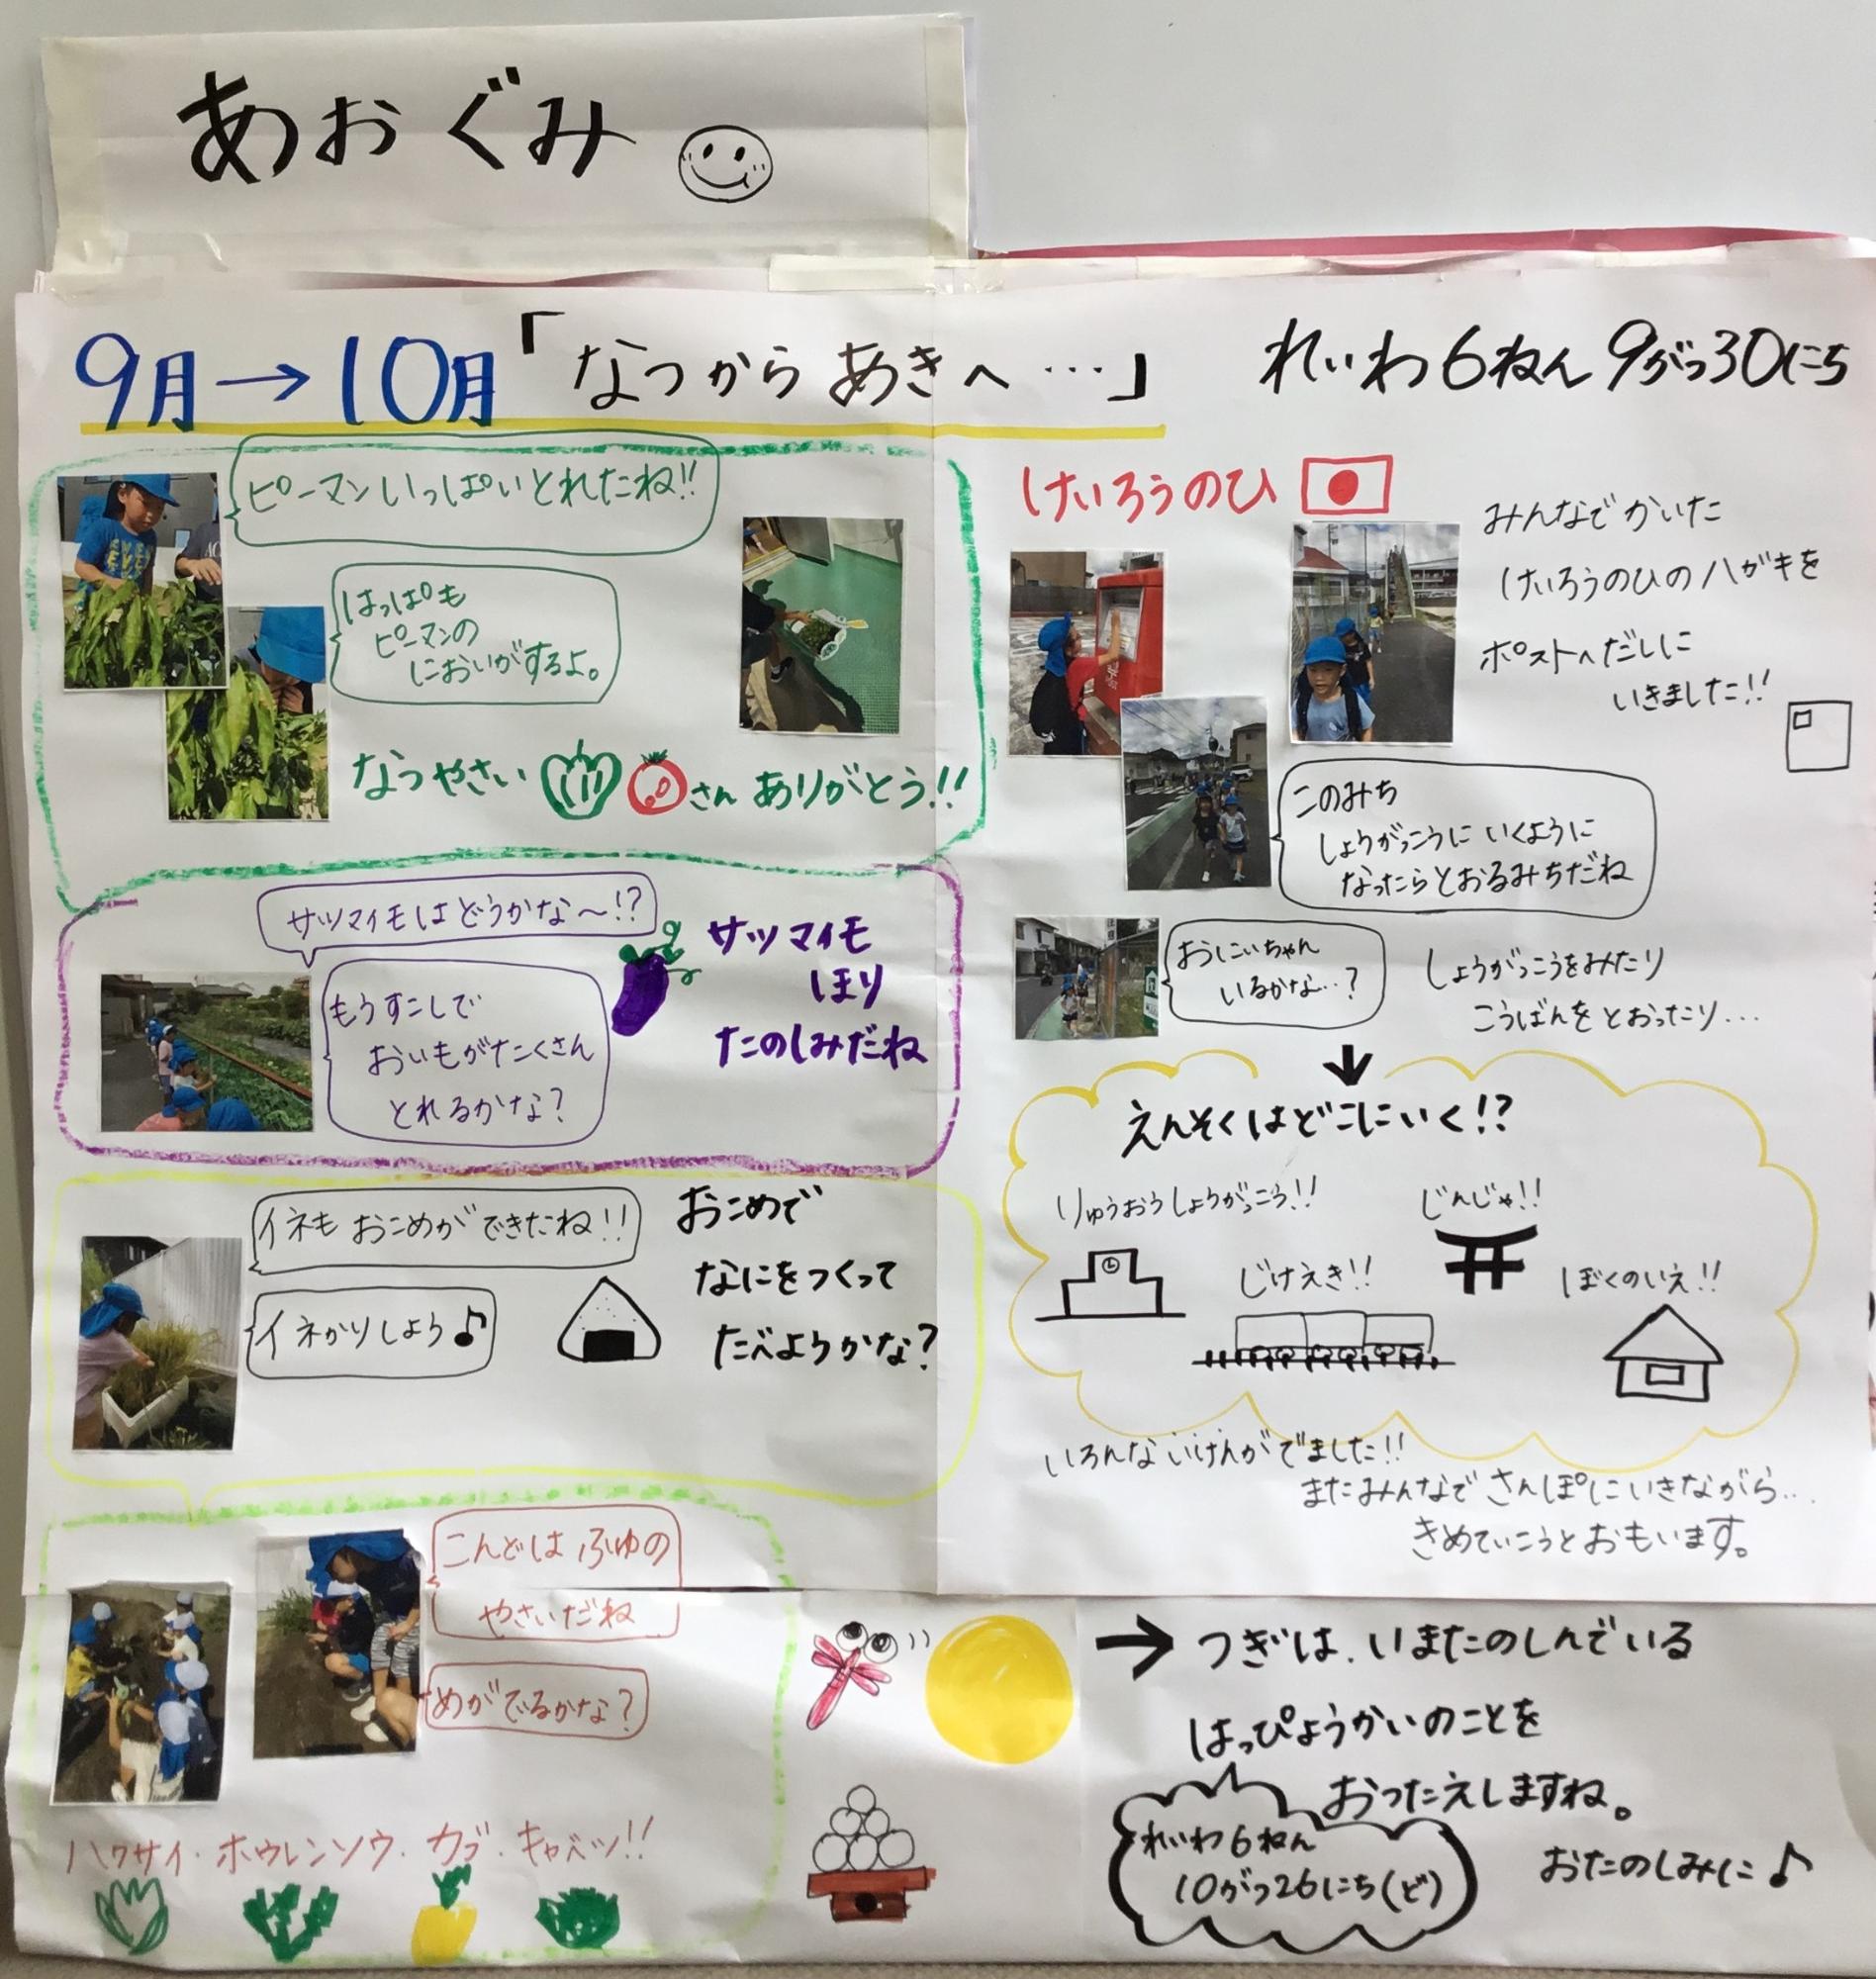 あおぐみ
9月→10月「なつからあきへ…」
れいわ6ねん9がつ30にち
ピーマンいっぱいとれたね!!
はっぱも
ピーマンの
においがするよ。
なつやさい
さん ありがとう!!
サツマイモはどうかな〜!?
もうすこしで
おいもがたくさん
とれるかな?
サツマイモ
ほり
たのしみだね
イネも おこめができたね!!
イネかりしよう♪
おこめで
なにをつくって
たべようかな?
こんどは ふゆの
やさいだね
めがでるかな?
ハクサイ・ホウレンソウ・カブ・キャベツ!!
けいろうのひ
みんなでかいた
けいろうのひのハガキを
ポストへだしに
いきました!!
このみち
しょうがっこうに いくように
なったらとおるみちだね
おにいちゃん
いるかな…?
しょうがっこうをみたり
こうばんをとおったり…
↓
えんそくはどこにいく!?
りゅうおうしょうがっこう!!
じんじゃ!!
じけえき!!
ぼくのいえ!!
いろんないけんがでました!!
またみんなで さんぽにいきながら…
きめていこうとおもいます。
→ つぎは、いまたのしんでいる
はっぴょうかいのことを
おつたえしますね。
れいわ6ねん
10がつ26にち(ど)
おたのしみに♪